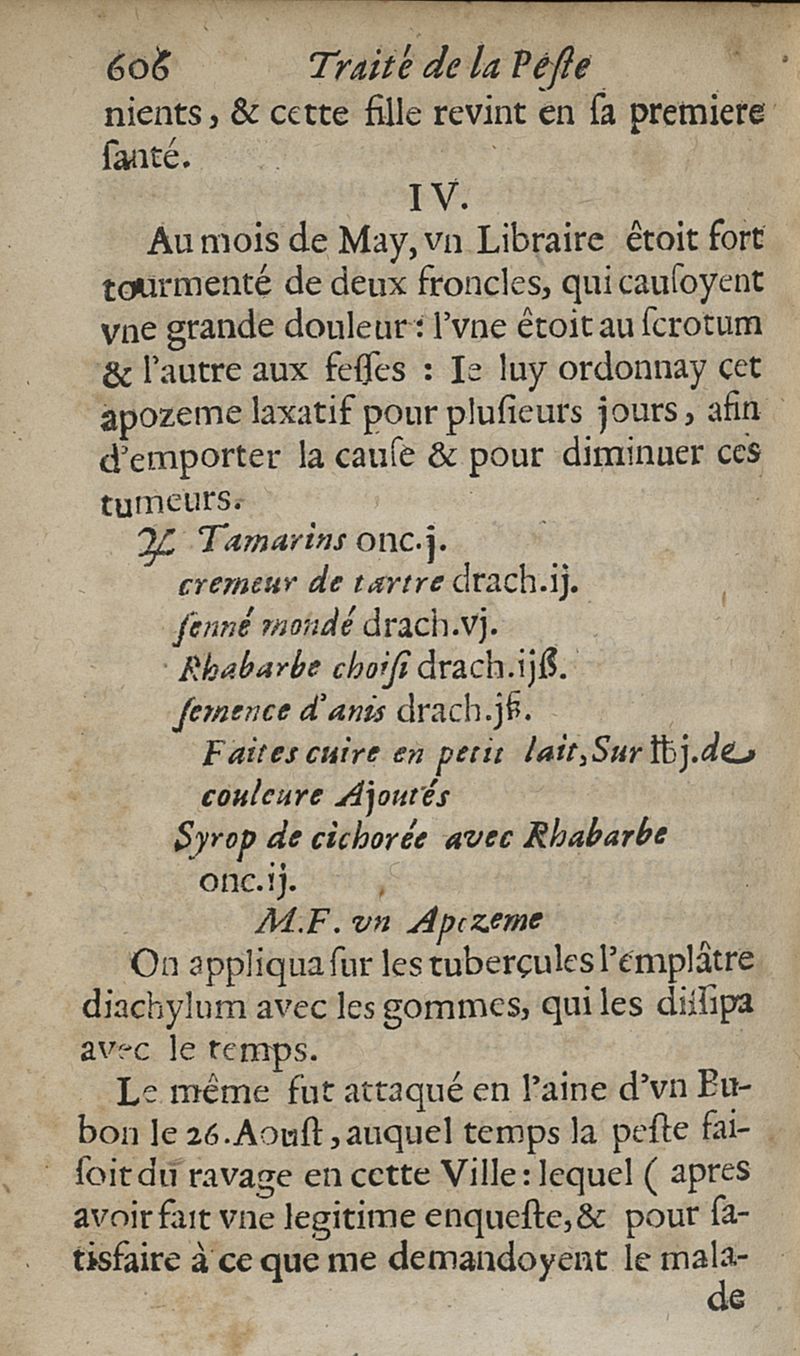 606 Traité de la Peſte
nients, & cette fille revint en ſa premiere
ſanté.
IV.
Au mois de May, vn Libraire êtoit fort
tourmenté de deux froncles, qui cauſoyent
vne grande douleur : l'vne êtoit au ſcrotum
& l'autre aux feſſes : Ie luy ordonnay cet
apozeme laxatif pour pluſieurs jours, afin
d'emporter la cauſe & pour diminuer ces
tumeurs.
℞ Tamarins onc.j.
cremeur de tartre drach.ij.
ſenné mondé drach.vj.
Rhabarbe choiſi drach.ijß.
ſemence d'anis drach.jß.
Faites cuire en petit lait, Sur ℔j.de
couleure Ajoutés
Syrop de cichorée avec Rhabarbe
onc.ij.
M.F. vn Apozeme
On appliqua ſur les tuberçules l'emplâtre
diachylum avec les gommes, qui les diſſipa
avec le temps.
Le même fut attaqué en l'aine d'vn Bu-
bon le 26. Aouſt, auquel temps la peſte fai-
ſoit du ravage en cette Ville : lequel ( apres
avoir fait vne legitime enqueſte, & pour ſa-
tisfaire à ce que me demandoyent le mala-
de